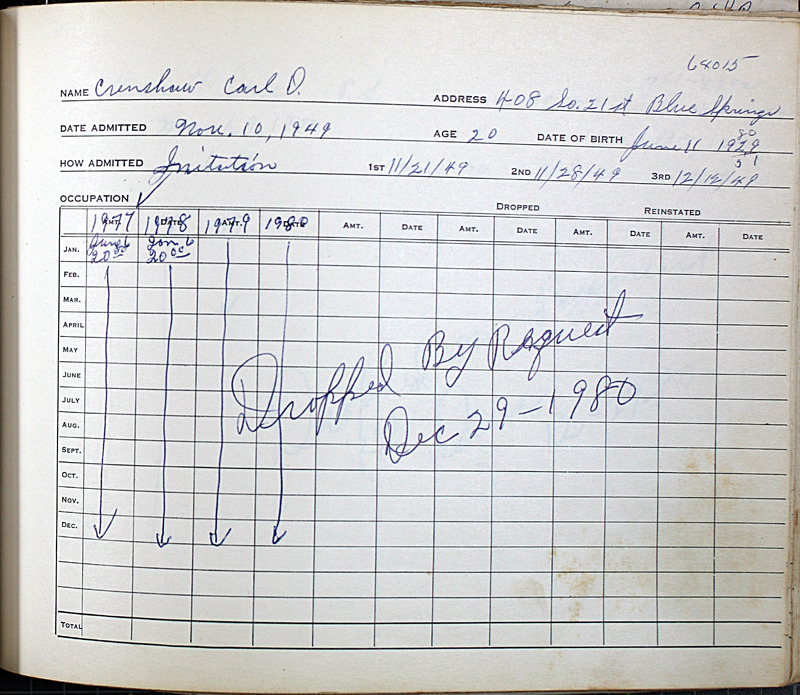 64015
NAME Crenshaw Carl D. ADDRESS 408 So. 21st Blue Springs
DATE ADMITTED Nov. 10, 1949 AGE 20 DATE OF BIRTH June 11 1929
80
51
HOW ADMITTED Initation 1ST 11/21/49 2ND 11/28/49 3RD 12/12/49
OCCUPATION
DROPPED REINSTATED
1977 1978 1979 1980 AMT. DATE AMT. DATE AMT. DATE AMT. DATE
JAN. 20 00 Jan 6 20 00
FEB.
MAR.
APRIL
MAY
JUNE
JULY
AUG.
SEPT.
OCT.
NOV.
DEC.
TOTAL
Dropped By Request
Dec 29-1980